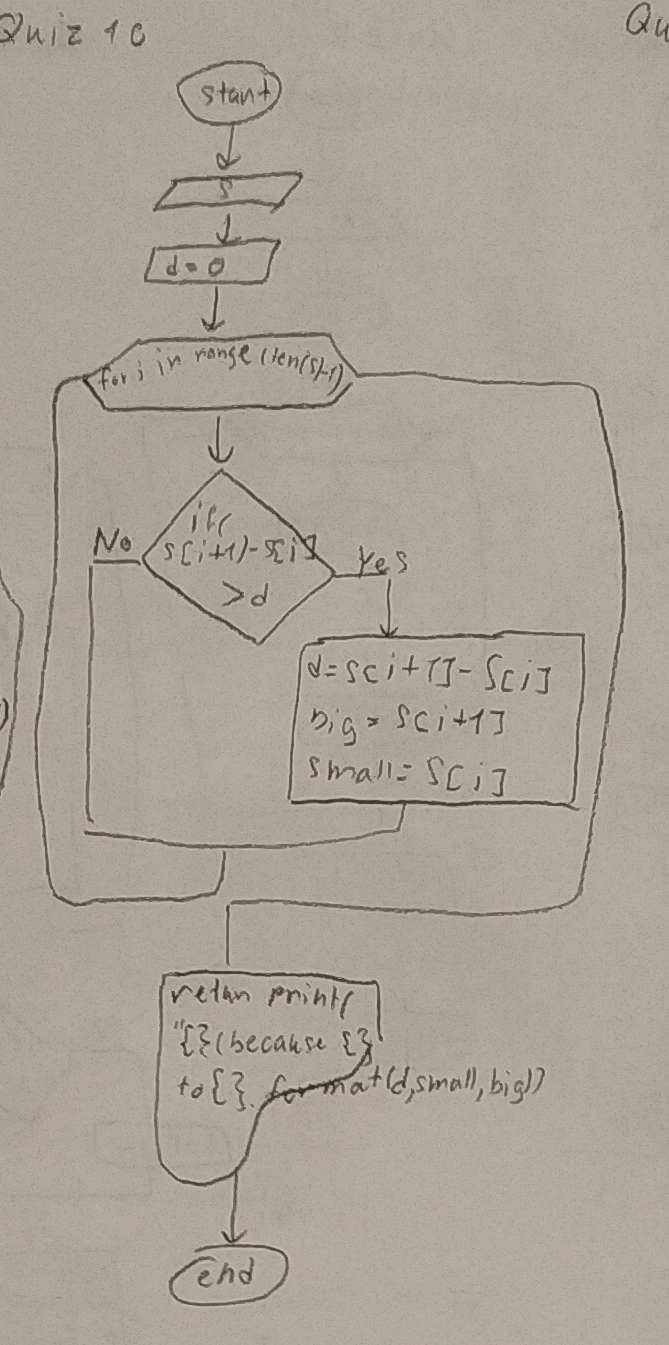 Quiz 10
Qu
start
S
d = 0
for i in range (len(s)-1)
if(
s[i+1)-s[i]
>d
No
Yes
d=s[i+1]-s[i]
big = s[i+1]
small= s[i]
retun print(
"{}(because {}
to{}. format(d,small,big))
end